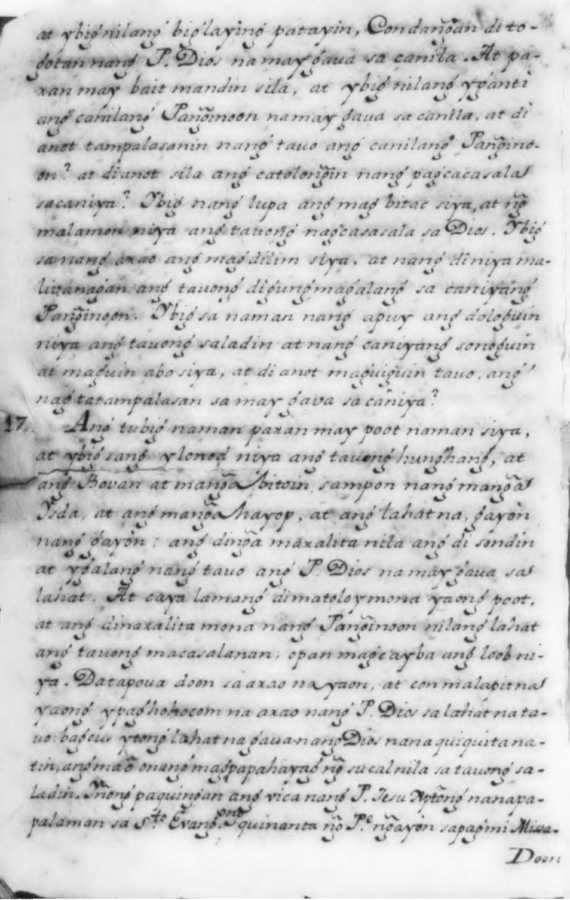 at ybig nilang biglaying patayin, Con dangan di to-
gotan nang P. Dios na may gaua sa canila. At pa-
ran may bait mandin sila, at ybig nilang yganti
ang canilang Panginoon na may gaua sa canila, at di
anot tampalasanin nang tauo ang canilang Pangino-
on? at di anot sila ang catolongin nang pagcacasala
sa caniya? Ybig nang lupa ang mag bitac siya, at ng
malamon niya ang tauong nagcacasala sa Dios. Ybig
sa nang arao ang magdilim siya, at nang di niya ma-
liuanagan ang tauong di gungmagalang sa caniyang
Panginoon. Ybig sa naman nang apuy ang
niya ang tauong saladin at nang caniyang sonoguin
at maguin abo siya, at di anot maguiguin tauo, ang
nag tatampalasan sa may gaua sa caniya?
17. Ang tubig naman paran may poot naman siya,
at ybig sang ylonod niya ang tauong hunghang, at
ang Bouan at manga bitoin, sampon nang manga
Ysda, at ang manga hayop, at ang lahat na, gayon
nang gayon: ang dinga maralita nila ang di sondin
at ygalang nang tauo ang P. Dios na may gaua sa
lahat. At caya lamang di matoloy mona yaong poot,
at ang dinaralita mona nang Panginoon nilang lahat
ang tauong macasalanan; opan magcayba ang loob ni-
ya. Datapoua doon sa arao na yaon, at con malapit na
yaong ypaghohocom na arao nang P. Dios sa lahat na ta-
uo: bagcus ytong lahat na gaua nang Dios na naquiquita na-
tin, ang magpapahayag ng sucal nila sa tauong sa-
ladin. paquingan ang uica nang P. Iesu Xptong nanapa-
palaman sa Sto Evang. quinanta ng Pe. ngayon sa pagmi Missa.
Doon